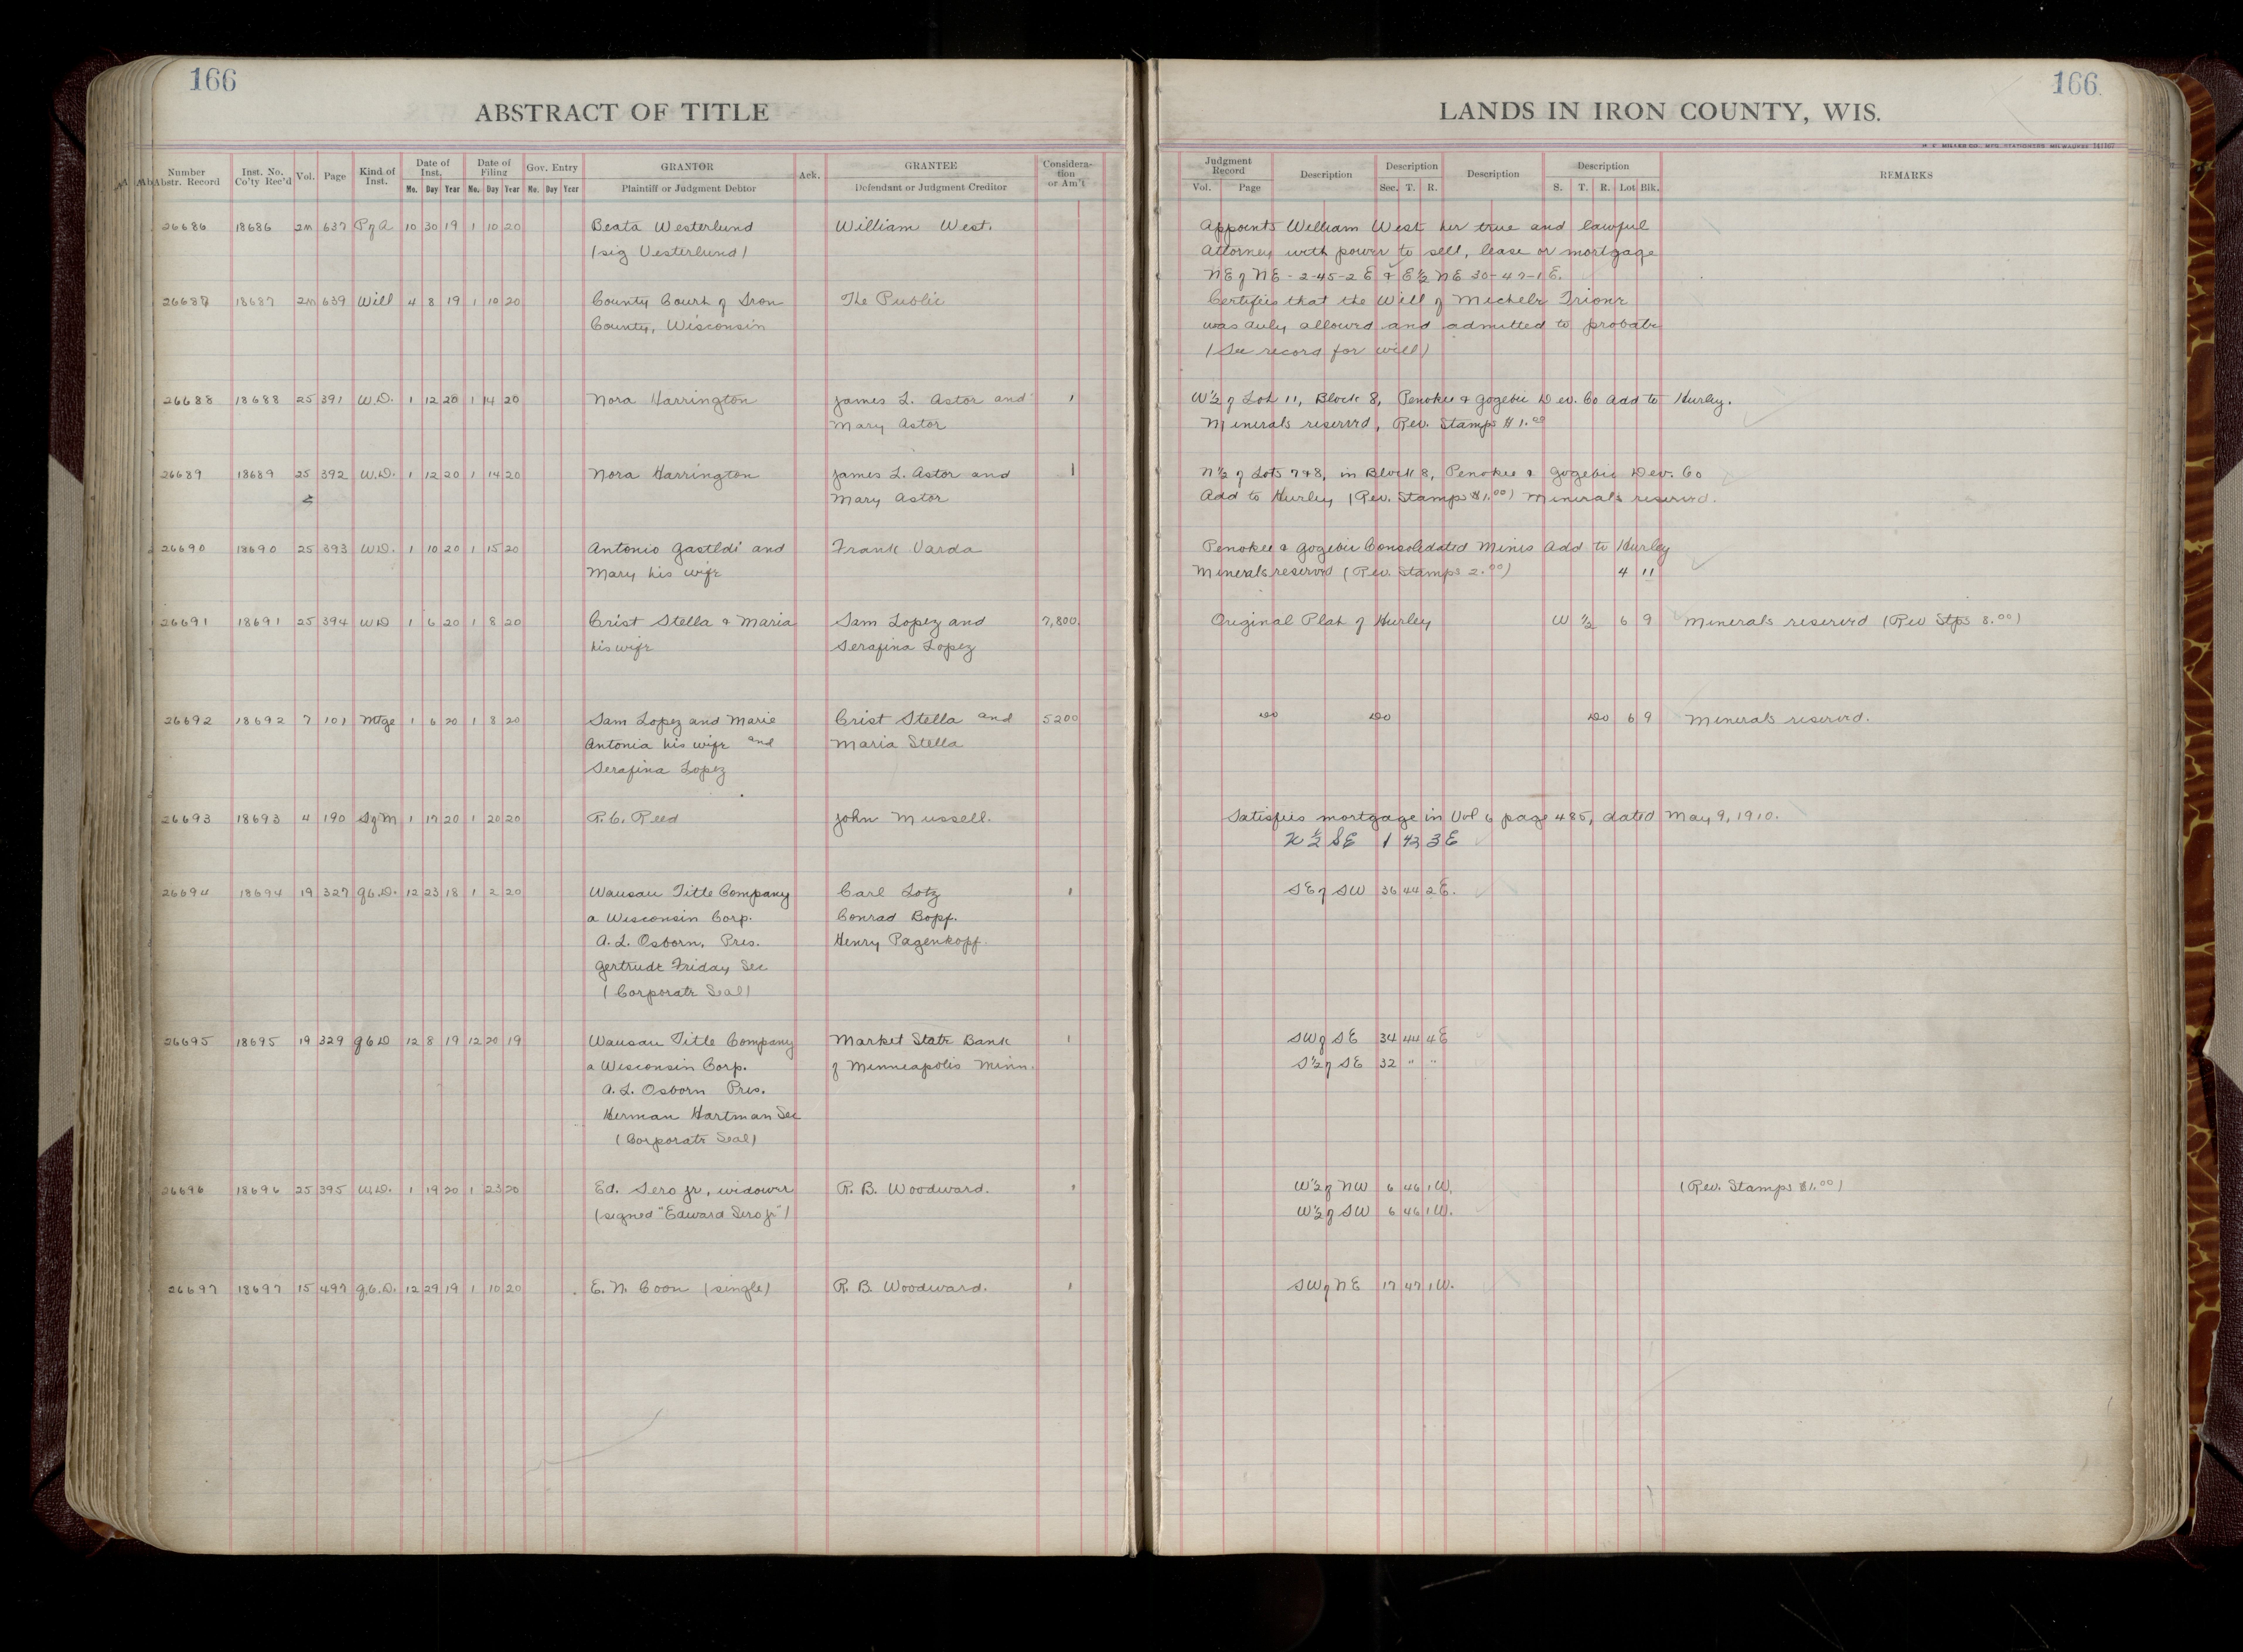 166
ABSTRACT OF TITLE
Number Abstr. Record | Inst. No. Co'ty Rec'd | Vol. | Page | Kind of Inst. | Date of Inst. Mo. Day Year | Date of Filing Mo. Day Year | Gov. Entry No. Day Year | GRANTOR Plaintiff or Judgment Debtor | Ack. | GRANTEE Defendant or Judgment Creditor | Considera-tion or Am't
26686 18686 2m 637 P of A 10 30 19 1 10 20 Beata Westerlund William West.
(sig Vesterlund)
26687 18687 2m 639 Will 4 8 19 1 10 20 County Court of Iron The Public
County, Wisconsin
26688 18688 25 391 W.D. 1 12 20 1 14 20 Nora Harrington James L. Astor and 1
Mary Astor
26689 18689 25 392 W.D. 1 12 20 1 14 20 Nora Harrington James L. Astor and 1
Mary Astor
26690 18690 25 393 W.D. 1 10 20 1 15 20 Antonio Gastldi and Frank Varda
Mary his wife
26691 18691 25 394 W D 1 6 20 1 8 20 Crist Stella & Maria Sam Lopez and 7,800.
his wife Serafina Lopez
26692 18692 7 101 Mtge 1 6 20 1 8 20 Sam Lopez and Marie Crist Stella and 5200
Antonia his wife and Maria Stella
Serafina Lopez
26693 18693 4 190 S of M 1 17 20 1 20 20 R.C. Reed John Mussell.
26694 18694 19 327 Q.C.D. 12 23 18 1 2 20 Wausau Title Company Carl Lotz 1
a Wisconsin Corp. Conrad Bopf.
A. L. Osborn, Pres. Henry Pagenkopf.
Gertrude Friday Sec
(Corporate Seal)
26695 18695 19 329 Q C D 12 8 19 12 20 19 Wausau Title Company Market State Bank 1
a Wisconsin Corp. of Minneapolis Minn.
A. L. Osborn Pres.
Herman Hartman Sec
(Corporate Seal)
26696 18696 25 395 W.D. 1 19 20 1 23 20 Ed. Sero Jr, widower R. B. Woodward. 1
(signed "Edward Sero Jr")
26697 18697 15 497 Q.C.D. 12 29 19 1 10 20 E. N. Coon (single) R. B. Woodward. 1
166
LANDS IN IRON COUNTY, WIS.
Judgment Record Vol. Page | Description | Description Sec. T. R. | Description | Description S. T. R. Lot Blk. | REMARKS
Appoints William West her true and lawful
Attorney with power to sell, lease or mortgage
NE of NE - 2-45-2 E & E½ NE 30-47-1 E.
Certifies that the Will of Michele Trione
was duly allowed and admitted to probate
(See record for will)
W½ of Lot 11, Block 8, Penokee & Gogebic Dev. Co Add to Hurley.
Minerals reserved, Rev. Stamps $1.00
N½ of Lots 7&8, in Block 8, Penokee & Gogebic Dev. Co
Add to Hurley (Rev. Stamps $1.00) Minerals reserved.
Penokee & Gogebic Consolidated Mines Add to Hurley
Minerals reserved (Rev. Stamps 2.00) 4 11
Original Plat of Hurley W ½ 6 9 Minerals reserved (Rev Stps 8.00)
Do Do Do 6 9 Minerals reserved.
Satisfies mortgage in Vol 6 page 485, dated May 9, 1910.
N ½ SE 1 43 3 E
SE of SW 36 44 2 E.
SW of SE 34 44 4 E
S½ of SE 32 " "
W½ of NW 6 46 1 W. (Rev. Stamps $1.00)
W½ of SW 6 46 1 W.
SW of NE 17 47 1 W.